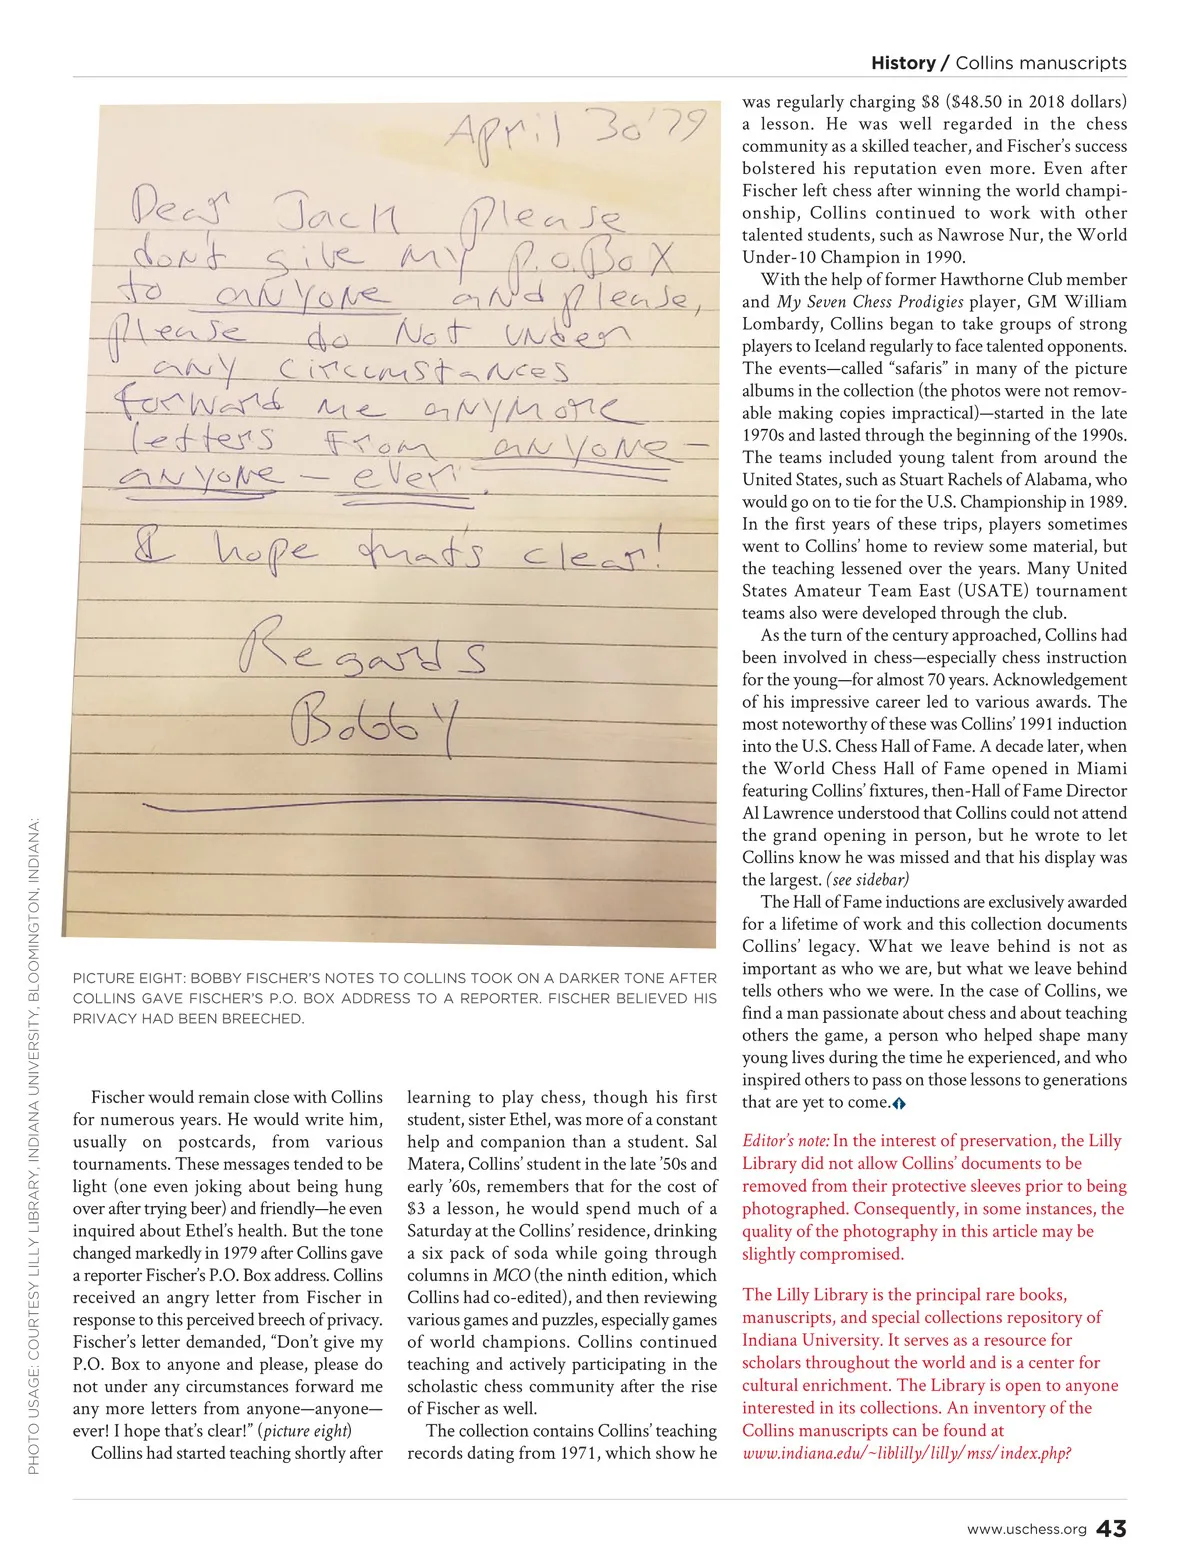 History / Collins manuscripts
April 30 '79
Dear Jack please
don't give my P.O. Box
to anyone and please,
please do Not under
any circumstances
forward me anymore
letters from anyone –
anyone – ever!
I hope that's clear!
Regards
Bobby
PICTURE EIGHT: BOBBY FISCHER'S NOTES TO COLLINS TOOK ON A DARKER TONE AFTER
COLLINS GAVE FISCHER'S P.O. BOX ADDRESS TO A REPORTER. FISCHER BELIEVED HIS
PRIVACY HAD BEEN BREECHED.
PHOTO USAGE: COURTESY LILLY LIBRARY, INDIANA UNIVERSITY, BLOOMINGTON, INDIANA:
Fischer would remain close with Collins
for numerous years. He would write him,
usually on postcards, from various
tournaments. These messages tended to be
light (one even joking about being hung
over after trying beer) and friendly—he even
inquired about Ethel's health. But the tone
changed markedly in 1979 after Collins gave
a reporter Fischer's P.O. Box address. Collins
received an angry letter from Fischer in
response to this perceived breech of privacy.
Fischer's letter demanded, “Don't give my
P.O. Box to anyone and please, please do
not under any circumstances forward me
any more letters from anyone—anyone—
ever! I hope that's clear!” (picture eight)
Collins had started teaching shortly after
learning to play chess, though his first
student, sister Ethel, was more of a constant
help and companion than a student. Sal
Matera, Collins' student in the late '50s and
early '60s, remembers that for the cost of
$3 a lesson, he would spend much of a
Saturday at the Collins' residence, drinking
a six pack of soda while going through
columns in MCO (the ninth edition, which
Collins had co-edited), and then reviewing
various games and puzzles, especially games
of world champions. Collins continued
teaching and actively participating in the
scholastic chess community after the rise
of Fischer as well.
The collection contains Collins' teaching
records dating from 1971, which show he
was regularly charging $8 ($48.50 in 2018 dollars)
a lesson. He was well regarded in the chess
community as a skilled teacher, and Fischer's success
bolstered his reputation even more. Even after
Fischer left chess after winning the world champi-
onship, Collins continued to work with other
talented students, such as Nawrose Nur, the World
Under-10 Champion in 1990.
With the help of former Hawthorne Club member
and My Seven Chess Prodigies player, GM William
Lombardy, Collins began to take groups of strong
players to Iceland regularly to face talented opponents.
The events—called “safaris” in many of the picture
albums in the collection (the photos were not remov-
able making copies impractical)—started in the late
1970s and lasted through the beginning of the 1990s.
The teams included young talent from around the
United States, such as Stuart Rachels of Alabama, who
would go on to tie for the U.S. Championship in 1989.
In the first years of these trips, players sometimes
went to Collins' home to review some material, but
the teaching lessened over the years. Many United
States Amateur Team East (USATE) tournament
teams also were developed through the club.
As the turn of the century approached, Collins had
been involved in chess—especially chess instruction
for the young—for almost 70 years. Acknowledgement
of his impressive career led to various awards. The
most noteworthy of these was Collins' 1991 induction
into the U.S. Chess Hall of Fame. A decade later, when
the World Chess Hall of Fame opened in Miami
featuring Collins' fixtures, then-Hall of Fame Director
Al Lawrence understood that Collins could not attend
the grand opening in person, but he wrote to let
Collins know he was missed and that his display was
the largest. (see sidebar)
The Hall of Fame inductions are exclusively awarded
for a lifetime of work and this collection documents
Collins' legacy. What we leave behind is not as
important as who we are, but what we leave behind
tells others who we were. In the case of Collins, we
find a man passionate about chess and about teaching
others the game, a person who helped shape many
young lives during the time he experienced, and who
inspired others to pass on those lessons to generations
that are yet to come.
Editor's note: In the interest of preservation, the Lilly
Library did not allow Collins' documents to be
removed from their protective sleeves prior to being
photographed. Consequently, in some instances, the
quality of the photography in this article may be
slightly compromised.
The Lilly Library is the principal rare books,
manuscripts, and special collections repository of
Indiana University. It serves as a resource for
scholars throughout the world and is a center for
cultural enrichment. The Library is open to anyone
interested in its collections. An inventory of the
Collins manuscripts can be found at
www.indiana.edu/~liblilly/lilly/mss/index.php?
www.uschess.org 43